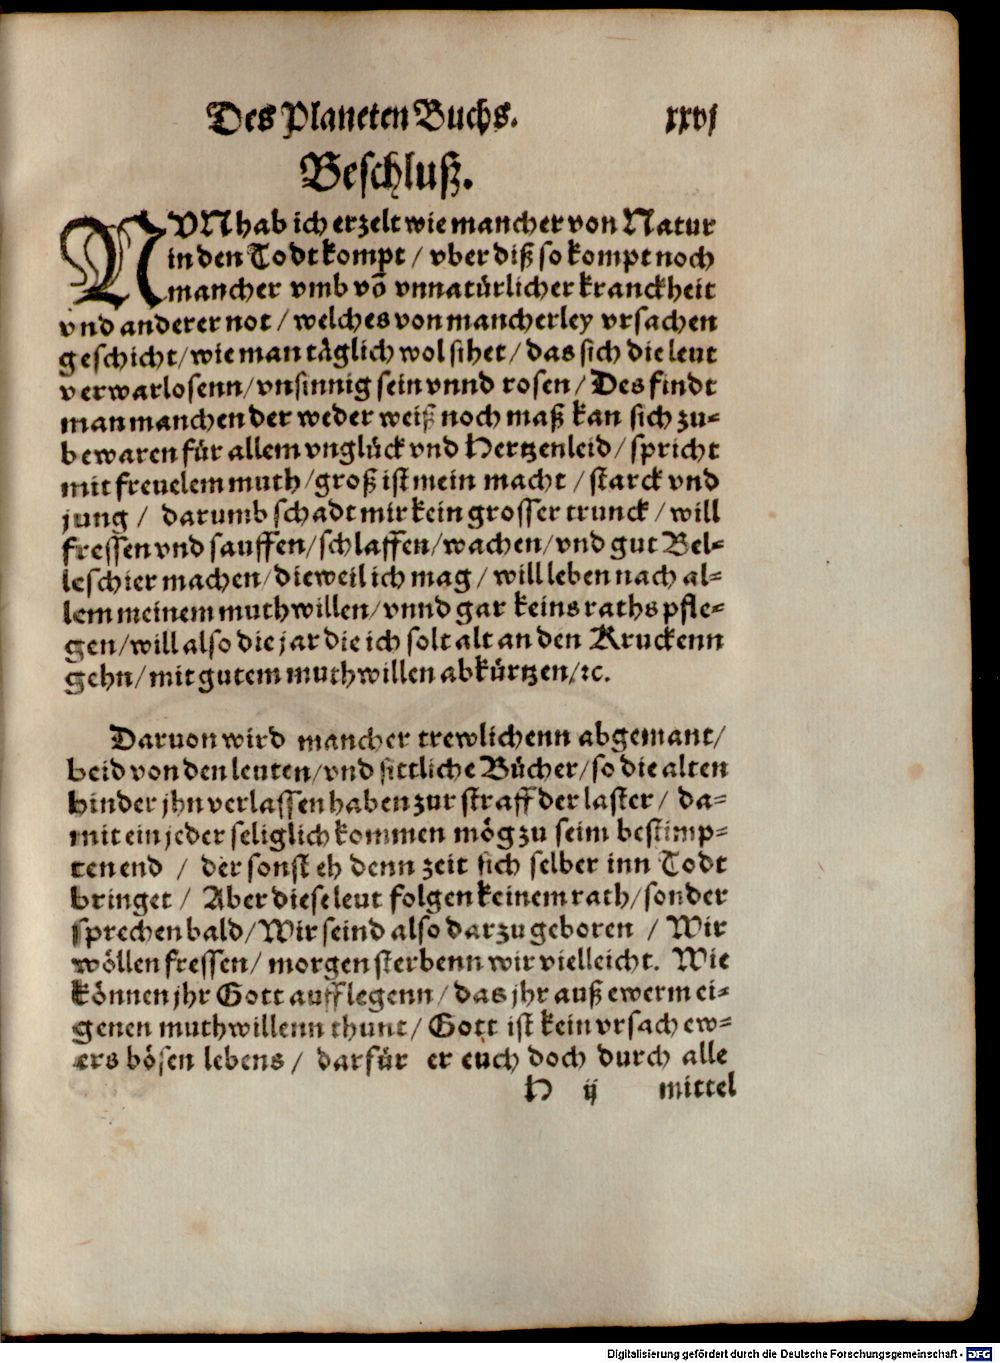 Des Planeten Buchs. xxvj
Beschluß.
NVN hab ich erzelt wie mancher von Natur
in den Todt kompt / vber diß so kompt noch
mancher vmb võ vnnatürlicher kranckheit
vnd anderer not / welches von mancherley vrsachen
geschicht / wie man täglich wol sihet / das sich die leut
verwarlosenn / vnsinnig sein vnnd rosen / Des findt
man manchen der weder weiß noch maß kan sich zu-
bewaren für allem vnglück vnd Hertzenleid / spricht
mit freuelem muth / groß ist mein macht / starck vnd
jung / darumb schadt mir kein grosser trunck / will
fressen vnd sauffen / schlaffen / wachen / vnd gut Bel-
leschier machen / dieweil ich mag / will leben nach al-
lem meinem muthwillen / vnnd gar keins raths pfle-
gen / will also die jar die ich solt alt an den Kruckenn
gehn / mit gutem muthwillen abkürtzen / ꝛc.
Daruon wird mancher trewlichenn abgemant /
beid von den leuten / vnd sittliche Bücher / so die alten
hinder jhn verlassen haben zur straff der laster / da-
mit ein jeder seliglich kommen mög zu seim bestimp-
ten end / der sonst eh denn zeit sich selber inn Todt
bringet / Aber diese leut folgen keinem rath / sonder
sprechen bald / Wir seind also darzu geboren / Wir
wöllen fressen / morgen sterbenn wir vielleicht. Wie
können jhr Gott aufflegenn / das jhr auß ewerm ei-
genen muthwillenn thunt / Gott ist kein vrsach ew-
ers bösen lebens / darfür er euch doch durch alle
H ij mittel
Digitalisierung gefördert durch die Deutsche Forschungsgemeinschaft - DFG